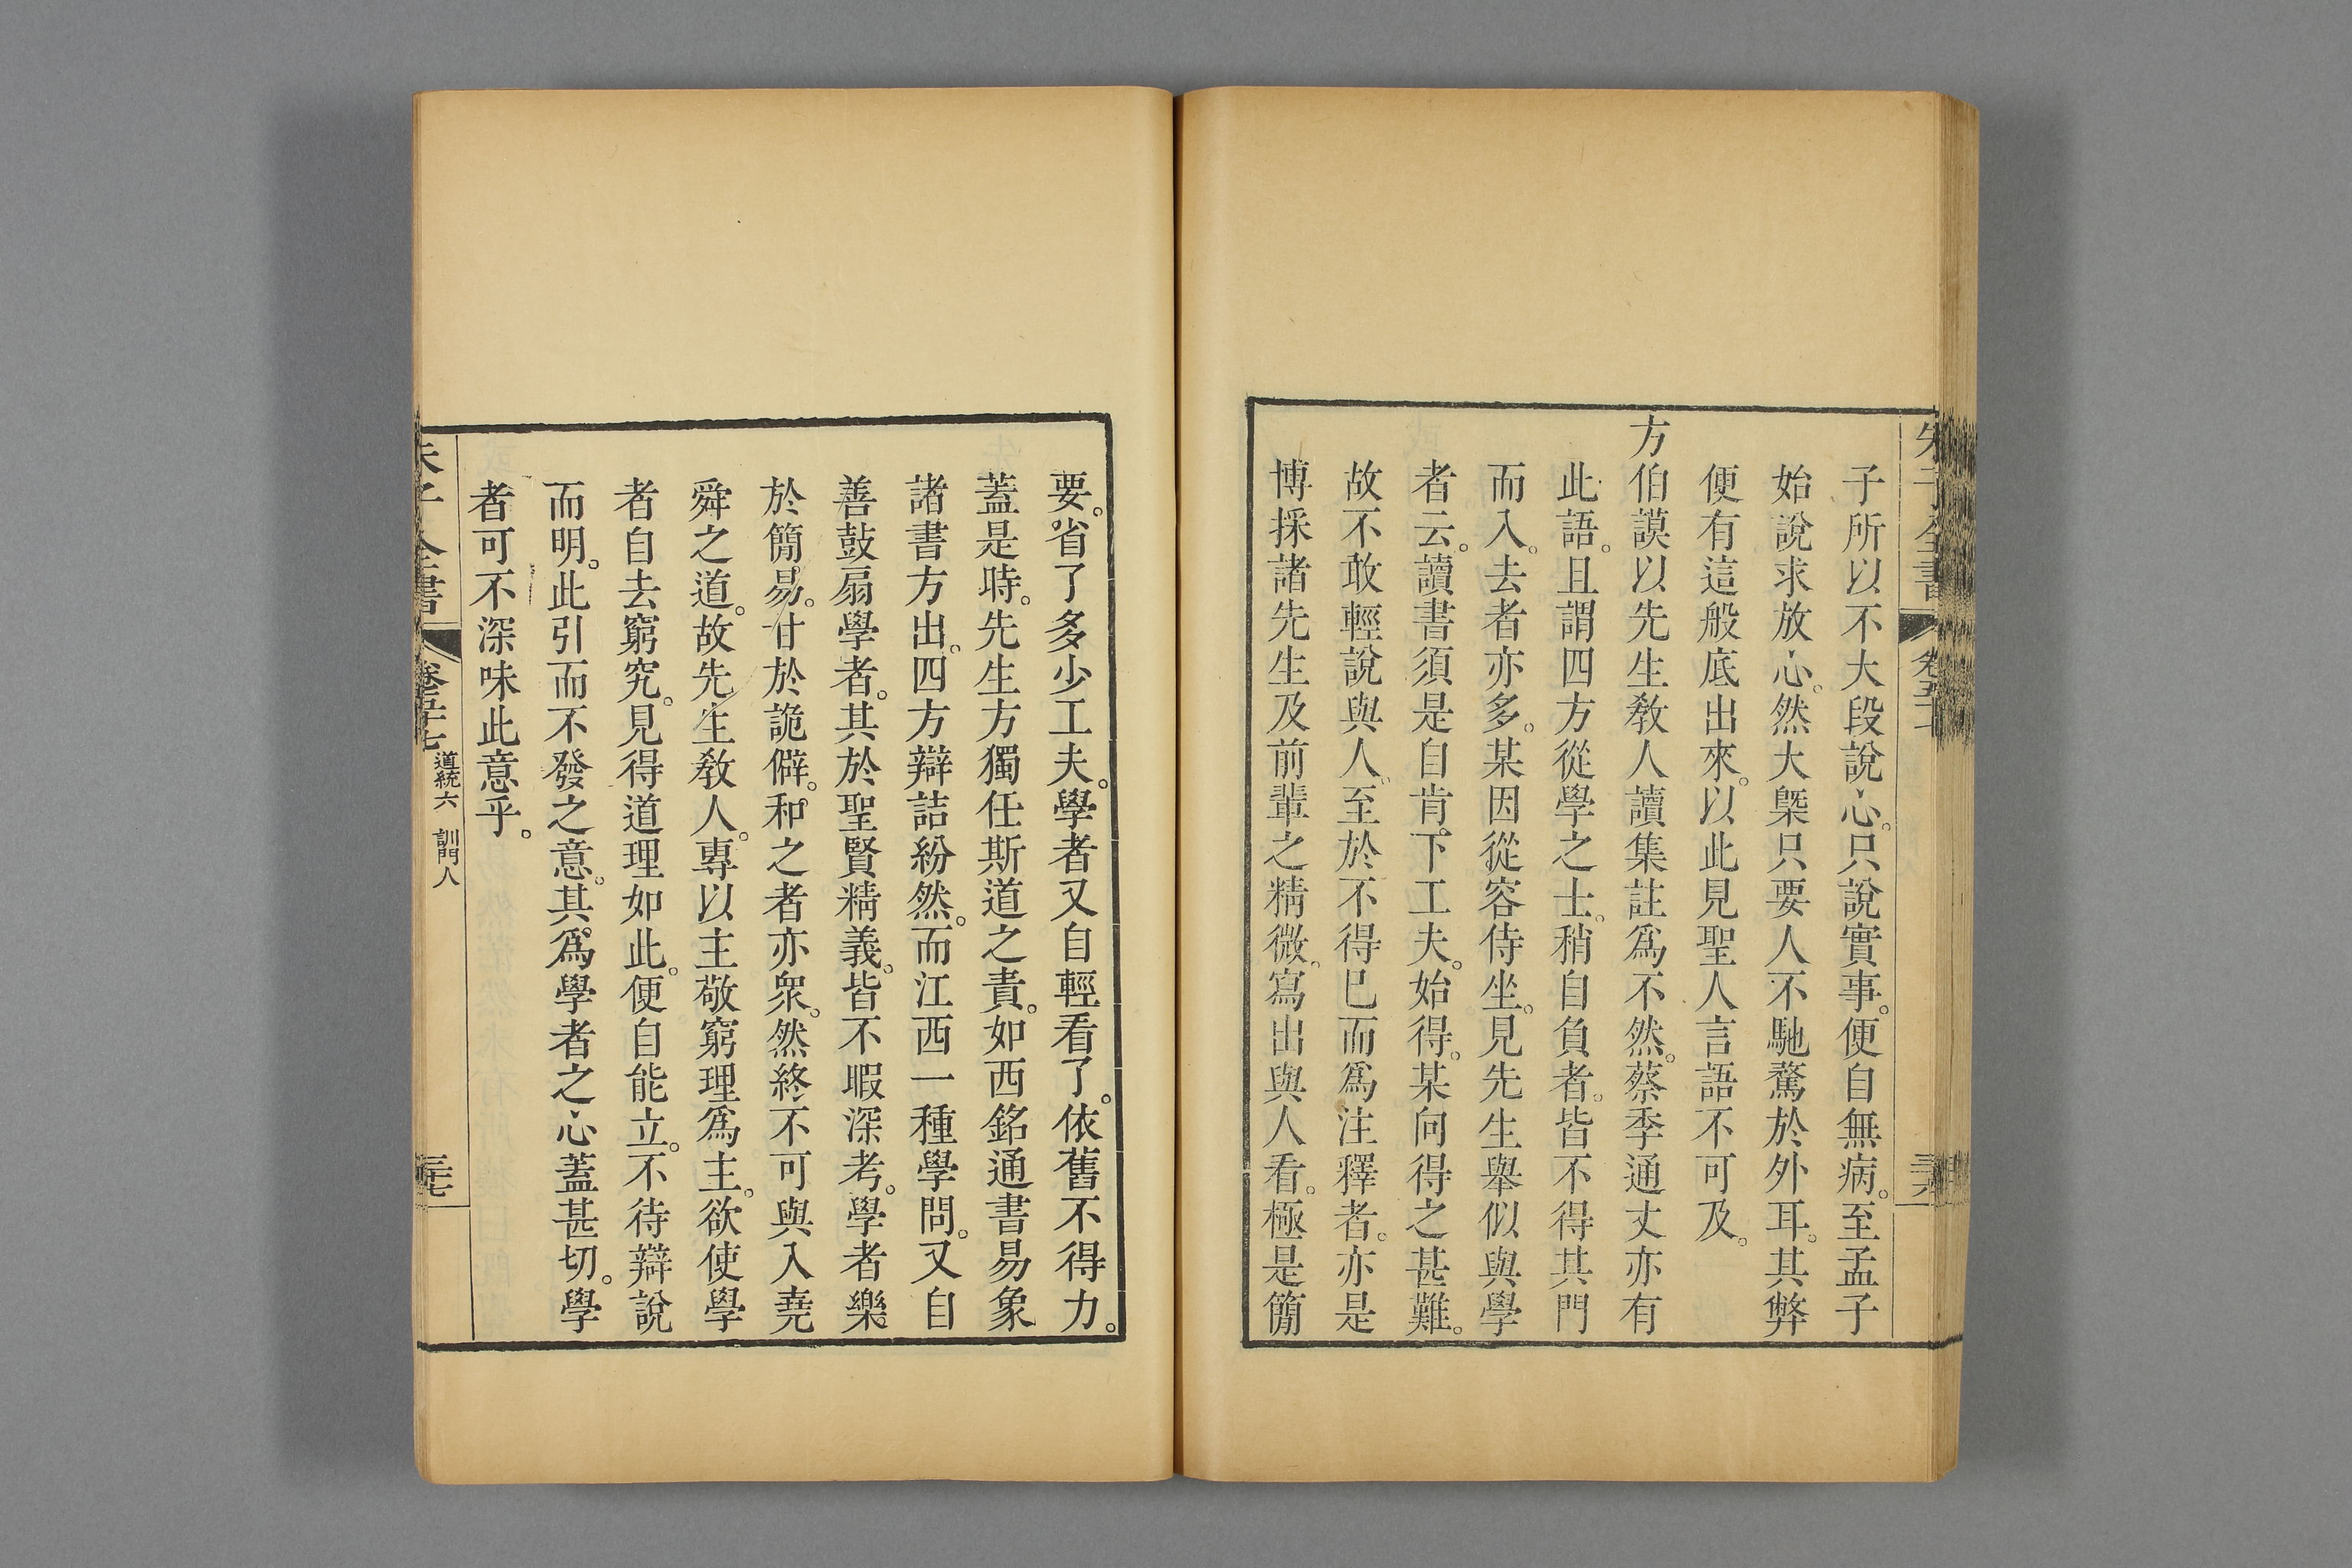 子所以不大段說心。只說實事。便自無病。至孟子
始說求放心。然大槩只要人不馳騖於外耳。其弊
便有這般底出來。以此見聖人言語不可及。
方伯謨以先生教人讀集註爲不然。蔡季通丈亦有
此語。且謂四方從學之士。稍自負者。皆不得其門
而入。去者亦多。某因從容侍坐。見先生舉似與學
者云。讀書須是自肯下工夫。始得。某向得之甚難。
故不敢輕說與人。至於不得已而爲注釋者。亦是
博採諸先生及前輩之精微。寫出與人看。極是簡
要。省了多少工夫。學者又自輕看了。依舊不得力。
蓋是時。先生方獨任斯道之責。如西銘通書易象
諸書方出。四方辯詰紛然。而江西一種學問。又自
善鼓扇學者。其於聖賢精義。皆不暇深考。學者樂
於簡易。甘於詭僻。和之者亦衆。然終不可與入堯
舜之道。故先生教人。專以主敬窮理爲主。欲使學
者自去窮究。見得道理如此。便自能立。不待辯說
而明。此引而不發之意。其爲學者之心蓋甚切。學
者可不深味此意乎。
朱子全書
卷五十七
道統六 訓門人
三十七